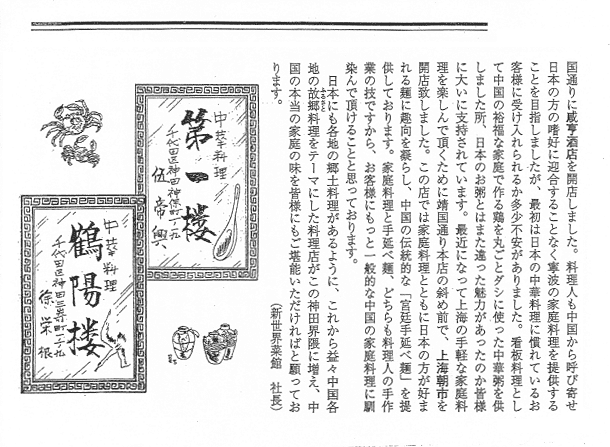 国通りに咸亨酒店を開店しました。料理人も中国から呼び寄せ
日本の方の嗜好に迎合することなく寧波の家庭料理を提供する
ことを目指しましたが、最初は日本の中華料理に慣れているお
客様に受け入れられるか多少不安がありました。看板料理とし
て中国の裕福な家庭で作る鶏を丸ごとダシに使った中華粥を供
しました所、日本のお粥とはまた違った魅力があったのか皆様
に大いに支持されています。最近になって上海の手軽な家庭料
理を楽しんで頂くために靖国通り本店の斜め前で、上海朝市を
開店致しました。この店では家庭料理とともに日本の方が好ま
れる麺に趣向を凝らし、中国の伝統的な「宮廷手延べ麺」を提
供しております。家庭料理と手延べ麺、どちらも料理人の手作
業の技ですから、お客様にもっと一般的な中国の家庭料理に馴
染んで頂けることと思っております。
日本にも各地の郷土料理があるように、これから益々中国各
地の故郷料理をテーマにした料理店がこの神田界隈に増え、中
国の本当の家庭の味を皆様にもご堪能いただければと願ってお
ります。
(新世界菜館 社長)
中華料理
第一楼
千代田区神田神保町一ノ九
伍帝興
中華料理
鶴陽楼
徐栄根